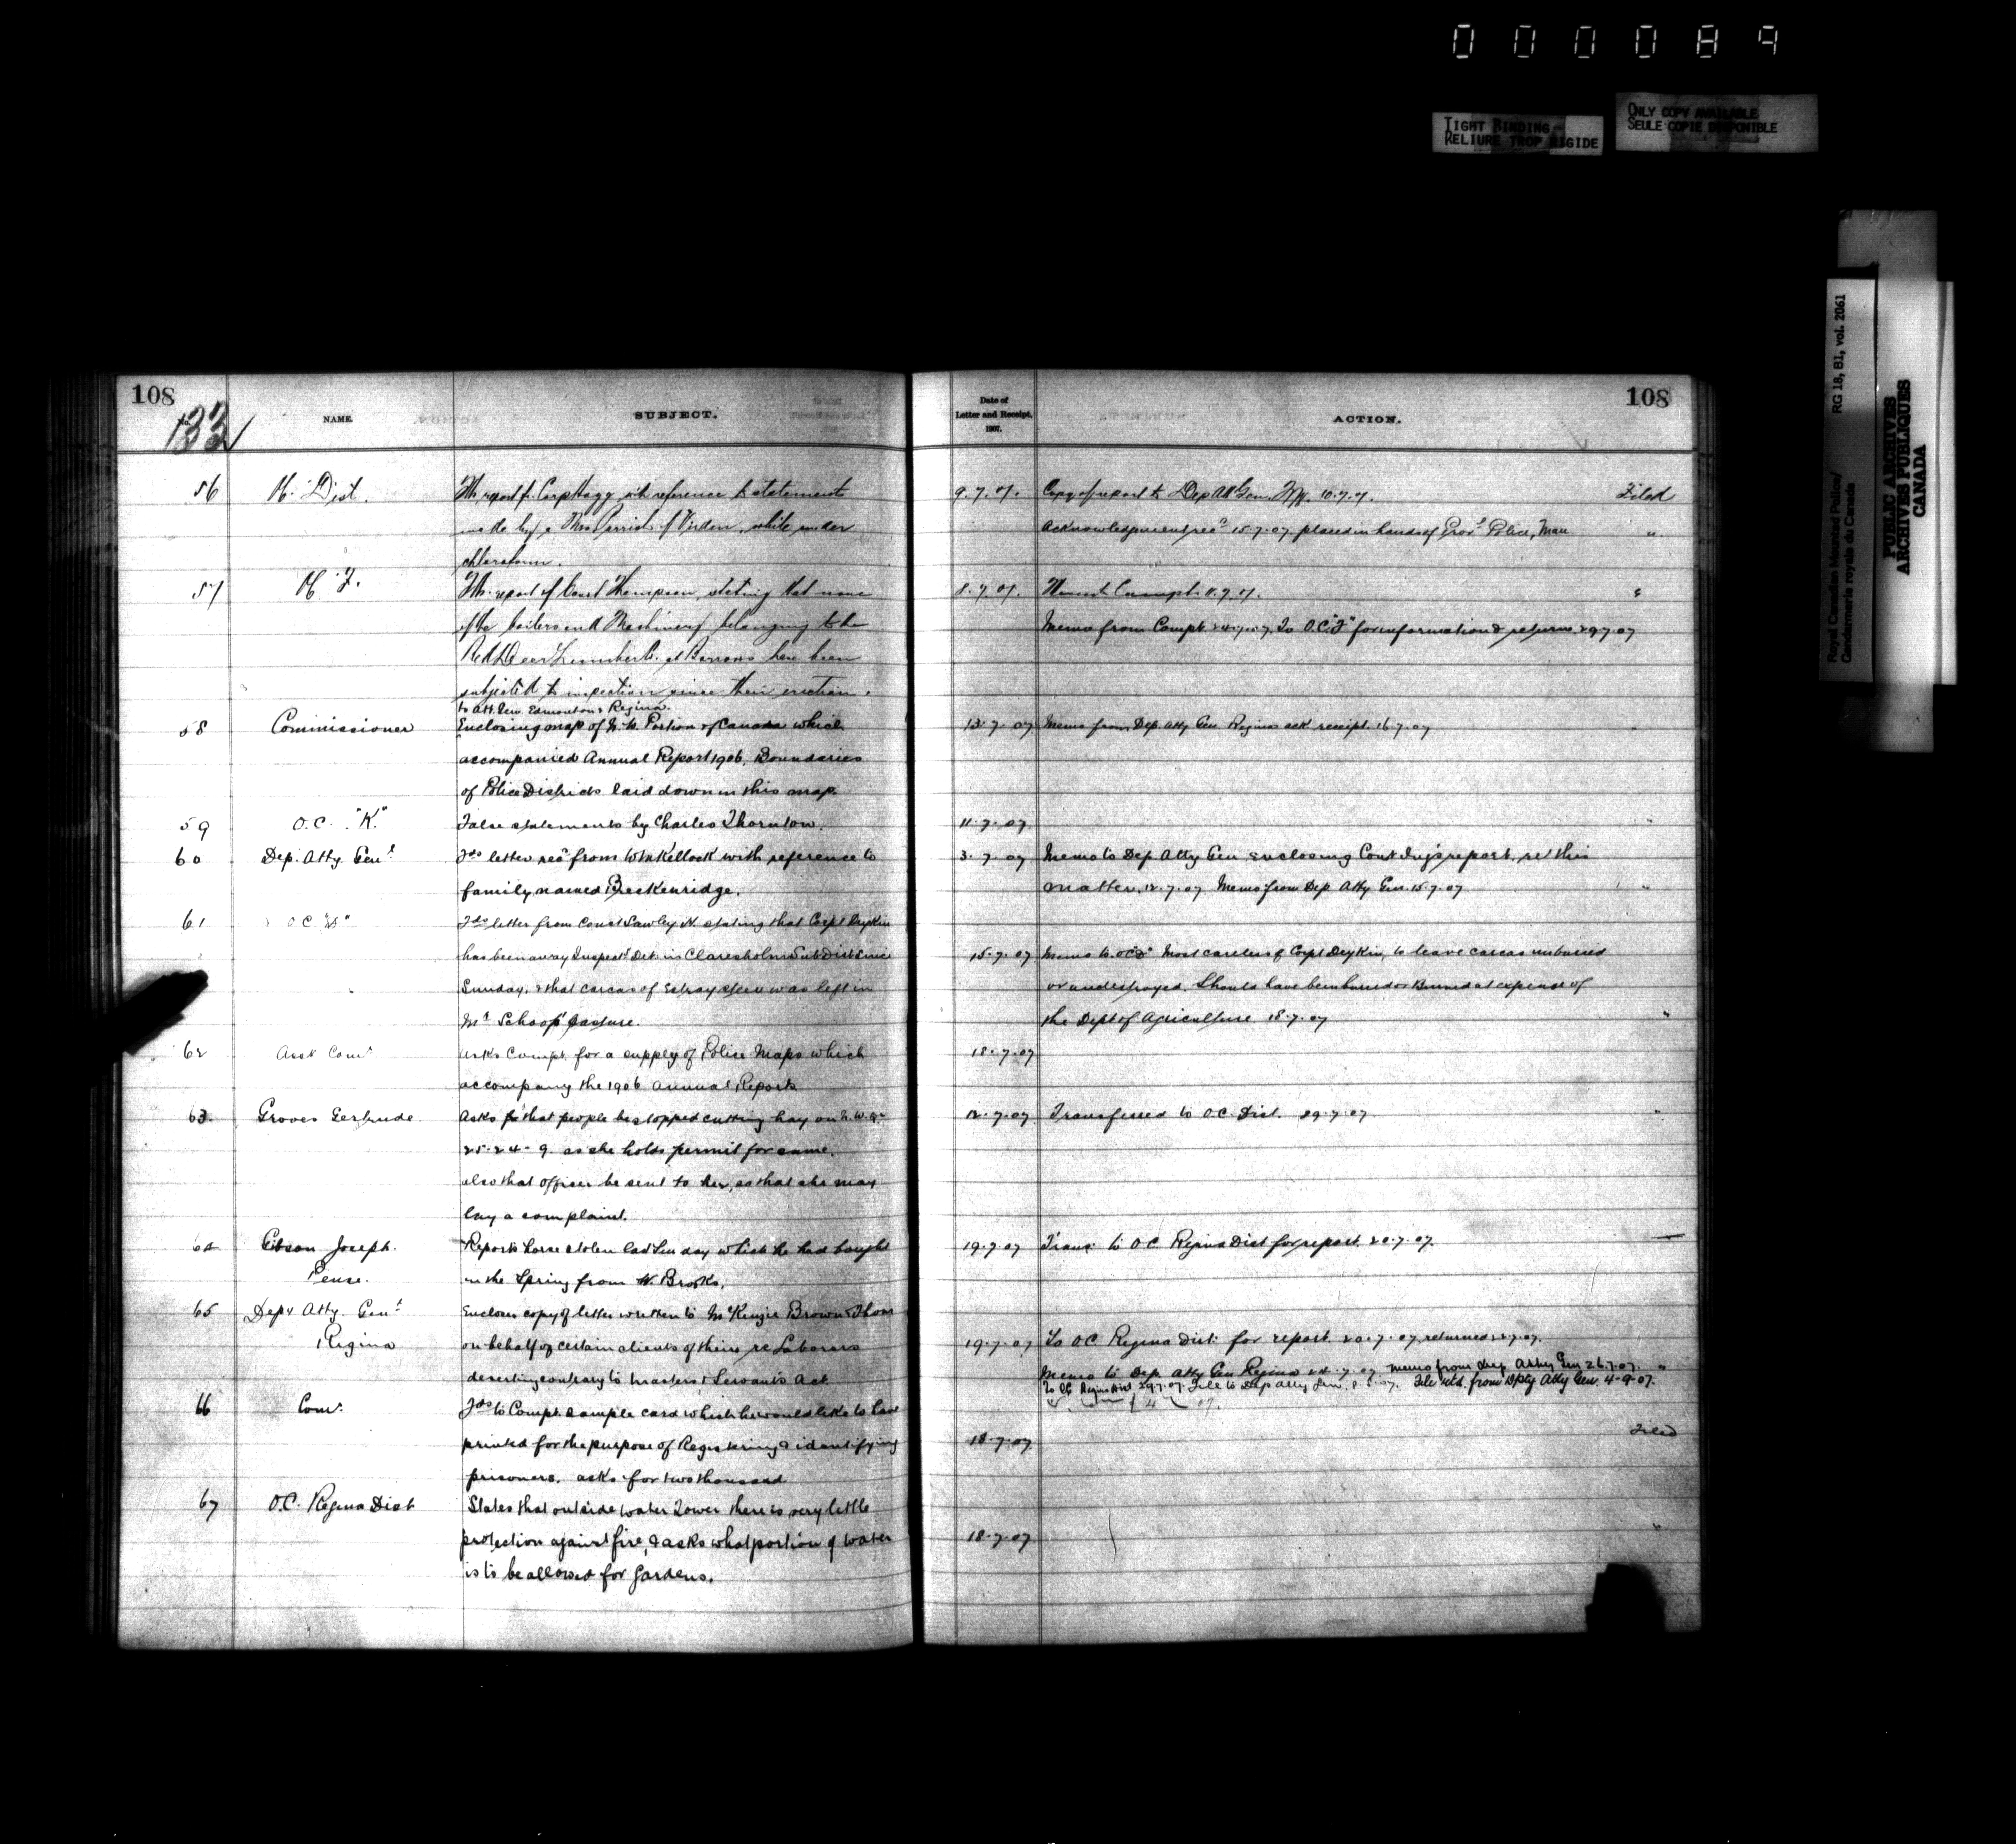 000089
TIGHT BINDING
RELIURE TROP RIGIDE
ONLY COPY AVAILABLE
SEULE COPIE DISPONIBLE
Royal Canadian Mounted Police/
Gendarmerie royale du Canada
RG 18, B1, vol. 2061
PUBLIC ARCHIVES
ARCHIVES PUBLIQUES
CANADA
108
133
NAME.
SUBJECT.
Date of
Letter and Receipt,
1907.
ACTION.
108
56 Dist. report Corp with reference to statement 9.7.07. Copy of report to Dep Att Gen. 10.7.07. Filed
made by a Mrs of Virden, while under Acknowledgement recd 15.7.07 placed in hands of Police, Man "
chloroform.
57 report of Const Thompson, stating that none 8.7.07. Compt. 11.7.07. "
of the boilers and Machinery belonging to the Memo from Compt. To O.C. for information & return 29.7.07
Red Deer Lumber Co. at Barrows have been
subjected to inspection since their erection.
to Att. Gen. Edmonton & Regina.
58 Commissioner Enclosing map of N.W. Portion of Canada which 13.7.07 Memo from Dep. Atty Gen Regina ack receipt. 16.7.07
accompanied Annual Report 1906, Boundaries
of Police Districts laid down in this map.
59 O.C. "K" False statements by Charles Thornton. 11.7.07 "
60 Dep. Atty. Genl Fds letter recd from with reference to 3.7.07 Memo to Dep Atty Gen enclosing Const report, re this
family named Breckenridge. matter, 12.7.07 Memo from Dep Atty Gen. 15.7.07 "
61 O.C. Fds letter from Const stating that Corpl Deykin
has been away Inspectg Dets in Claresholm Sub Dist since 15.7.07 Memo to O.C. Most careless of Corpl Deykin, to leave carcas unburied
Sunday, & that carcas of Estray steer was left in or undestroyed. Should have been buried or Burned at expense of
Mr pasture. the Dept of Agriculture 18.7.07 "
62 Asst Comr Asks Compt. for a supply of Police Maps which 18.7.07
accompany the 1906 Annual Reports
63. Groves Gertrude. Asks that people be stopped cutting hay on N.W. 12.7.07 Transferred to O.C. Dist. 29.7.07 "
25-24-9 as she holds permit for same.
also that officer be sent to her, so that she may
lay a complaint.
64 Gibson Joseph. Reports horse stolen last Sunday which he had bought 19.7.07 Trans to O.C. Regina Dist for report. 20.7.07
Pense. in the Spring from W. Brooks.
65 Depy Atty. Genl Encloses copy of letter written to McKenzie Brown & Thom
Regina on behalf of certain clients of theirs re Laborers 19.7.07 To O.C. Regina Dist. for report. 20.7.07 returned
deserting contrary to Masters & Servants Act Memo to Dep. Atty Gen Regina memo from dep Atty Gen 26.7.07. "
To O.C. Regina Dist 29.7.07. File to Dep Atty Gen. File retd. from Dpty Atty Gen. 4-9-07.
66 Comr. Fds to Compt. sample card which he would like to have
printed for the purpose of Registering & identifying 18.7.07 Filed
prisoners. asks for two thousand
67 O.C. Regina Dist States that outside water Tower there is very little
protection against fire, & asks what portion of water 18.7.07 "
is to be allowed for Gardens.